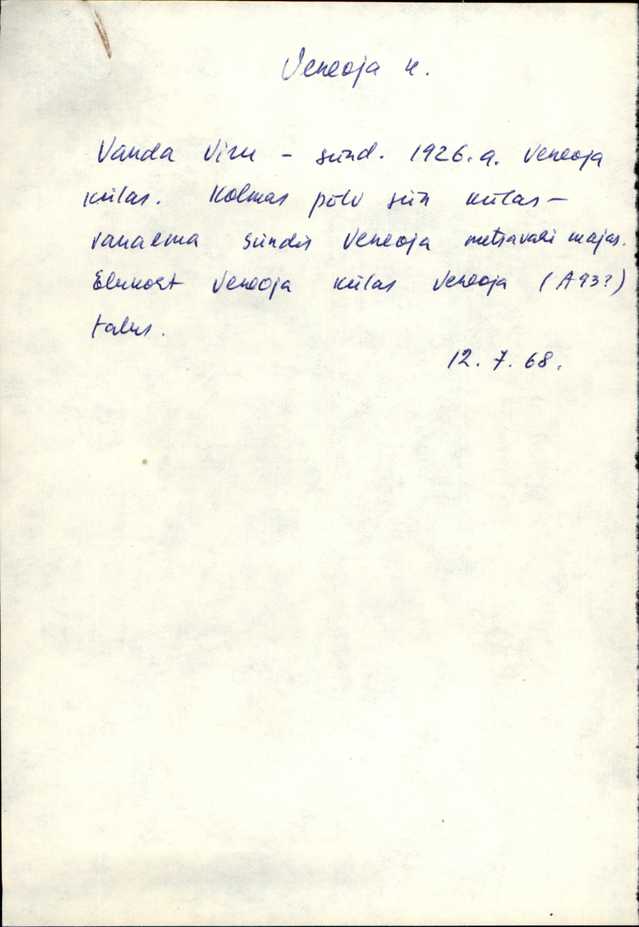 Veneoja k.
Vanda Viru - sünd. 1926.a. Veneoja
külas. Kolmas põlv siin külas -
vanaema sündis Veneoja metsavahi majas.
Elukoht Veneoja külas Veneoja (A93?)
talus.
12.7.68.